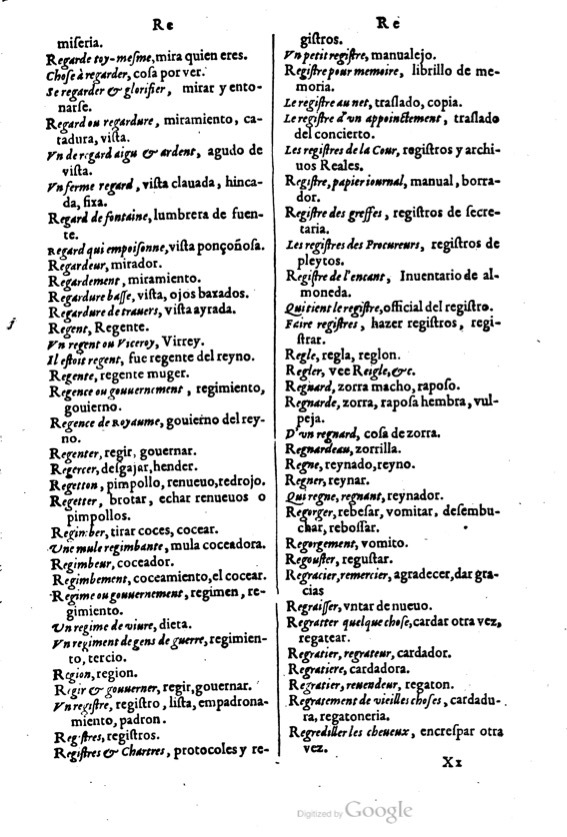 Re
miſeria.
Regarde toy-meſme, mira quien eres.
Choſe à regarder, coſa por ver.
Se regarder & glorifier, mirar y ento-
narſe.
Regard ou regardure, miramiento, ca-
tadura, viſta.
Vn de regard aigu & ardent, agudo de
viſta.
Vn ferme regard, viſta clauada, hinca-
da, fixa.
Regard de fontaine, lumbrera de fuen-
te.
Regard qui empoiſonne, viſta ponçoñoſa.
Regardeur, mirador.
Regardement, miramiento.
Regardure baſſe, viſta, ojos baxados.
Regardure de trauers, viſta ayrada.
Regent, Regente.
Vn regent ou Viceroy, Virrey.
Il eſtoit regent, fue regente del reyno.
Regente, regente muger.
Regence ou gouuernement, regimiento,
gouierno.
Regence de Royaume, gouierno del rey-
no.
Regenter, regir, gouernar.
Regercer, deſgajar, hender.
Regetton, pimpollo, renueuo, redrojo.
Regetter, brotar, echar renueuos o
pimpollos.
Regimber, tirar coces, cocear.
Une mule regimbante, mula coceadora.
Regimbeur, coceador.
Regimbement, coceamiento, el cocear.
Regime ou gouuernement, regimen, re-
gimiento.
Un regime de viure, dieta.
Vn regiment de gens de guerre, regimien-
to, tercio.
Region, region.
Regir & gouuerner, regir, gouernar.
Vn regiſtre, regiſtro, liſta, empadrona-
miento, padron.
Regiſtres, regiſtros.
Regiſtres & Chartres, protocoles y re-
Re
giſtros.
Vn petit regiſtre, manualejo.
Regiſtre pour memoire, librillo de me-
moria.
Le regiſtre au net, traſlado, copia.
Le regiſtre d'vn appoinctement, traſlado
del concierto.
Les regiſtres de la Cour, regiſtros y archi-
uos Reales.
Regiſtre, papier iournal, manual, borra-
dor.
Regiſtre des greffes, regiſtros de ſecre-
taria.
Les regiſtres des Procureurs, regiſtros de
pleytos.
Regiſtre de l'encant, Inuentario de al-
moneda.
Qui tient le regiſtre, official del regiſtro.
Faire regiſtres, hazer regiſtros, regi-
ſtrar.
Regle, regla, reglon.
Regler, vee Reigle, &c.
Regnard, zorra macho, rapoſo.
Regnarde, zorra, rapoſa hembra, vul-
peja.
D'vn regnard, coſa de zorra.
Regnardeau, zorrilla.
Regne, reynado, reyno.
Regner, reynar.
Qui regne, regnant, reynador.
Regorger, rebeſar, vomitar, deſembu-
char, reboſſar.
Regorgement, vomito.
Regouſter, reguſtar.
Regracier, remercier, agradecer, dar gra-
cias
Regraiſſer, vntar de nueuo.
Regratter quelque choſe, cardar otra vez,
regatear.
Regratier, regrateur, cardador.
Regratiere, cardadora.
Regratier, reuendeur, regaton.
Regratement de vieilles choſes, cardadu-
ra, regatoneria.
Regrediller les cheueux, encreſpar otra
vez.
Xx
Digitized by Google